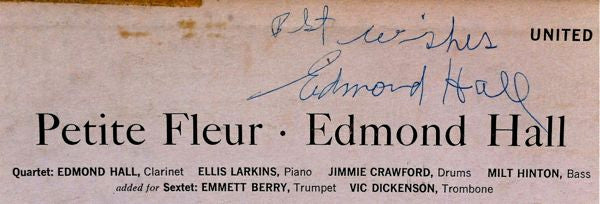 Best wishes
UNITED
Edmond Hall
Petite Fleur · Edmond Hall
Quartet: EDMOND HALL, Clarinet ELLIS LARKINS, Piano JIMMIE CRAWFORD, Drums MILT HINTON, Bass
added for Sextet: EMMETT BERRY, Trumpet VIC DICKENSON, Trombone